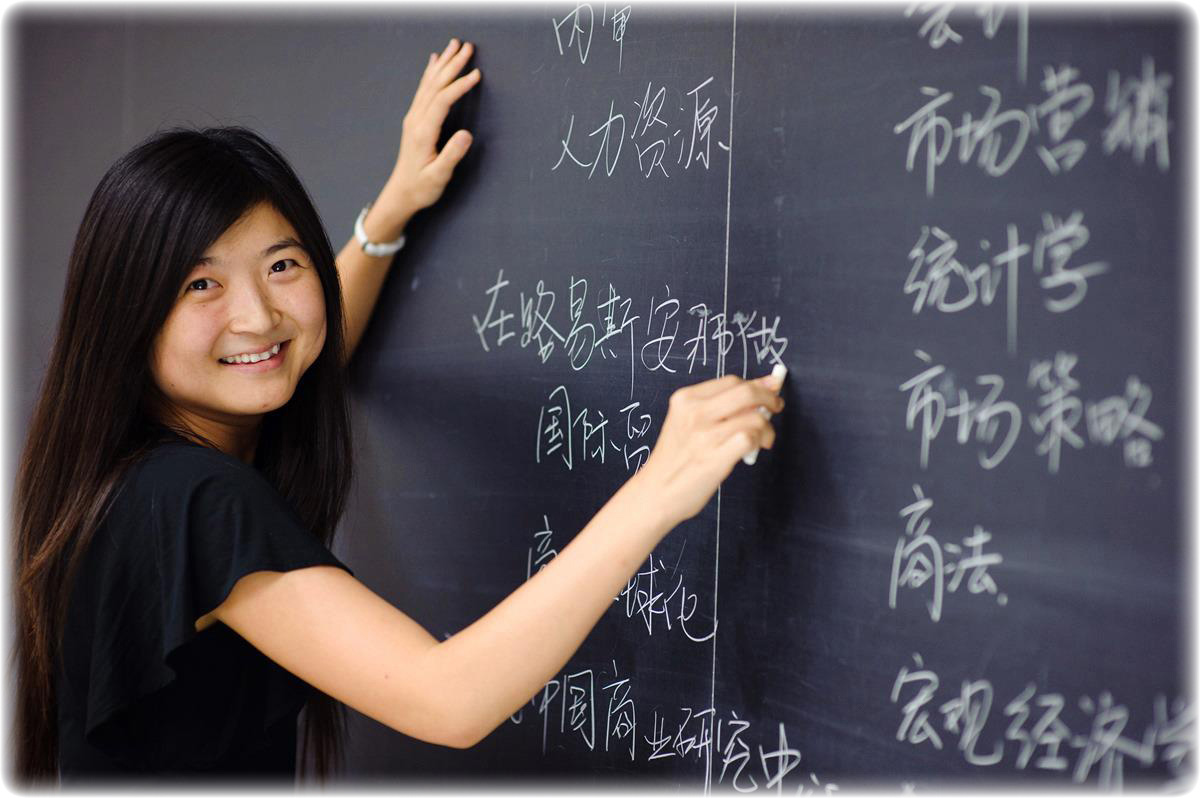 内审
人力资源
在路易斯安那做
国际贸
商 球化
中国商业研究中
会计
市场营销
统计学
市场策略
商法
宏观经济学